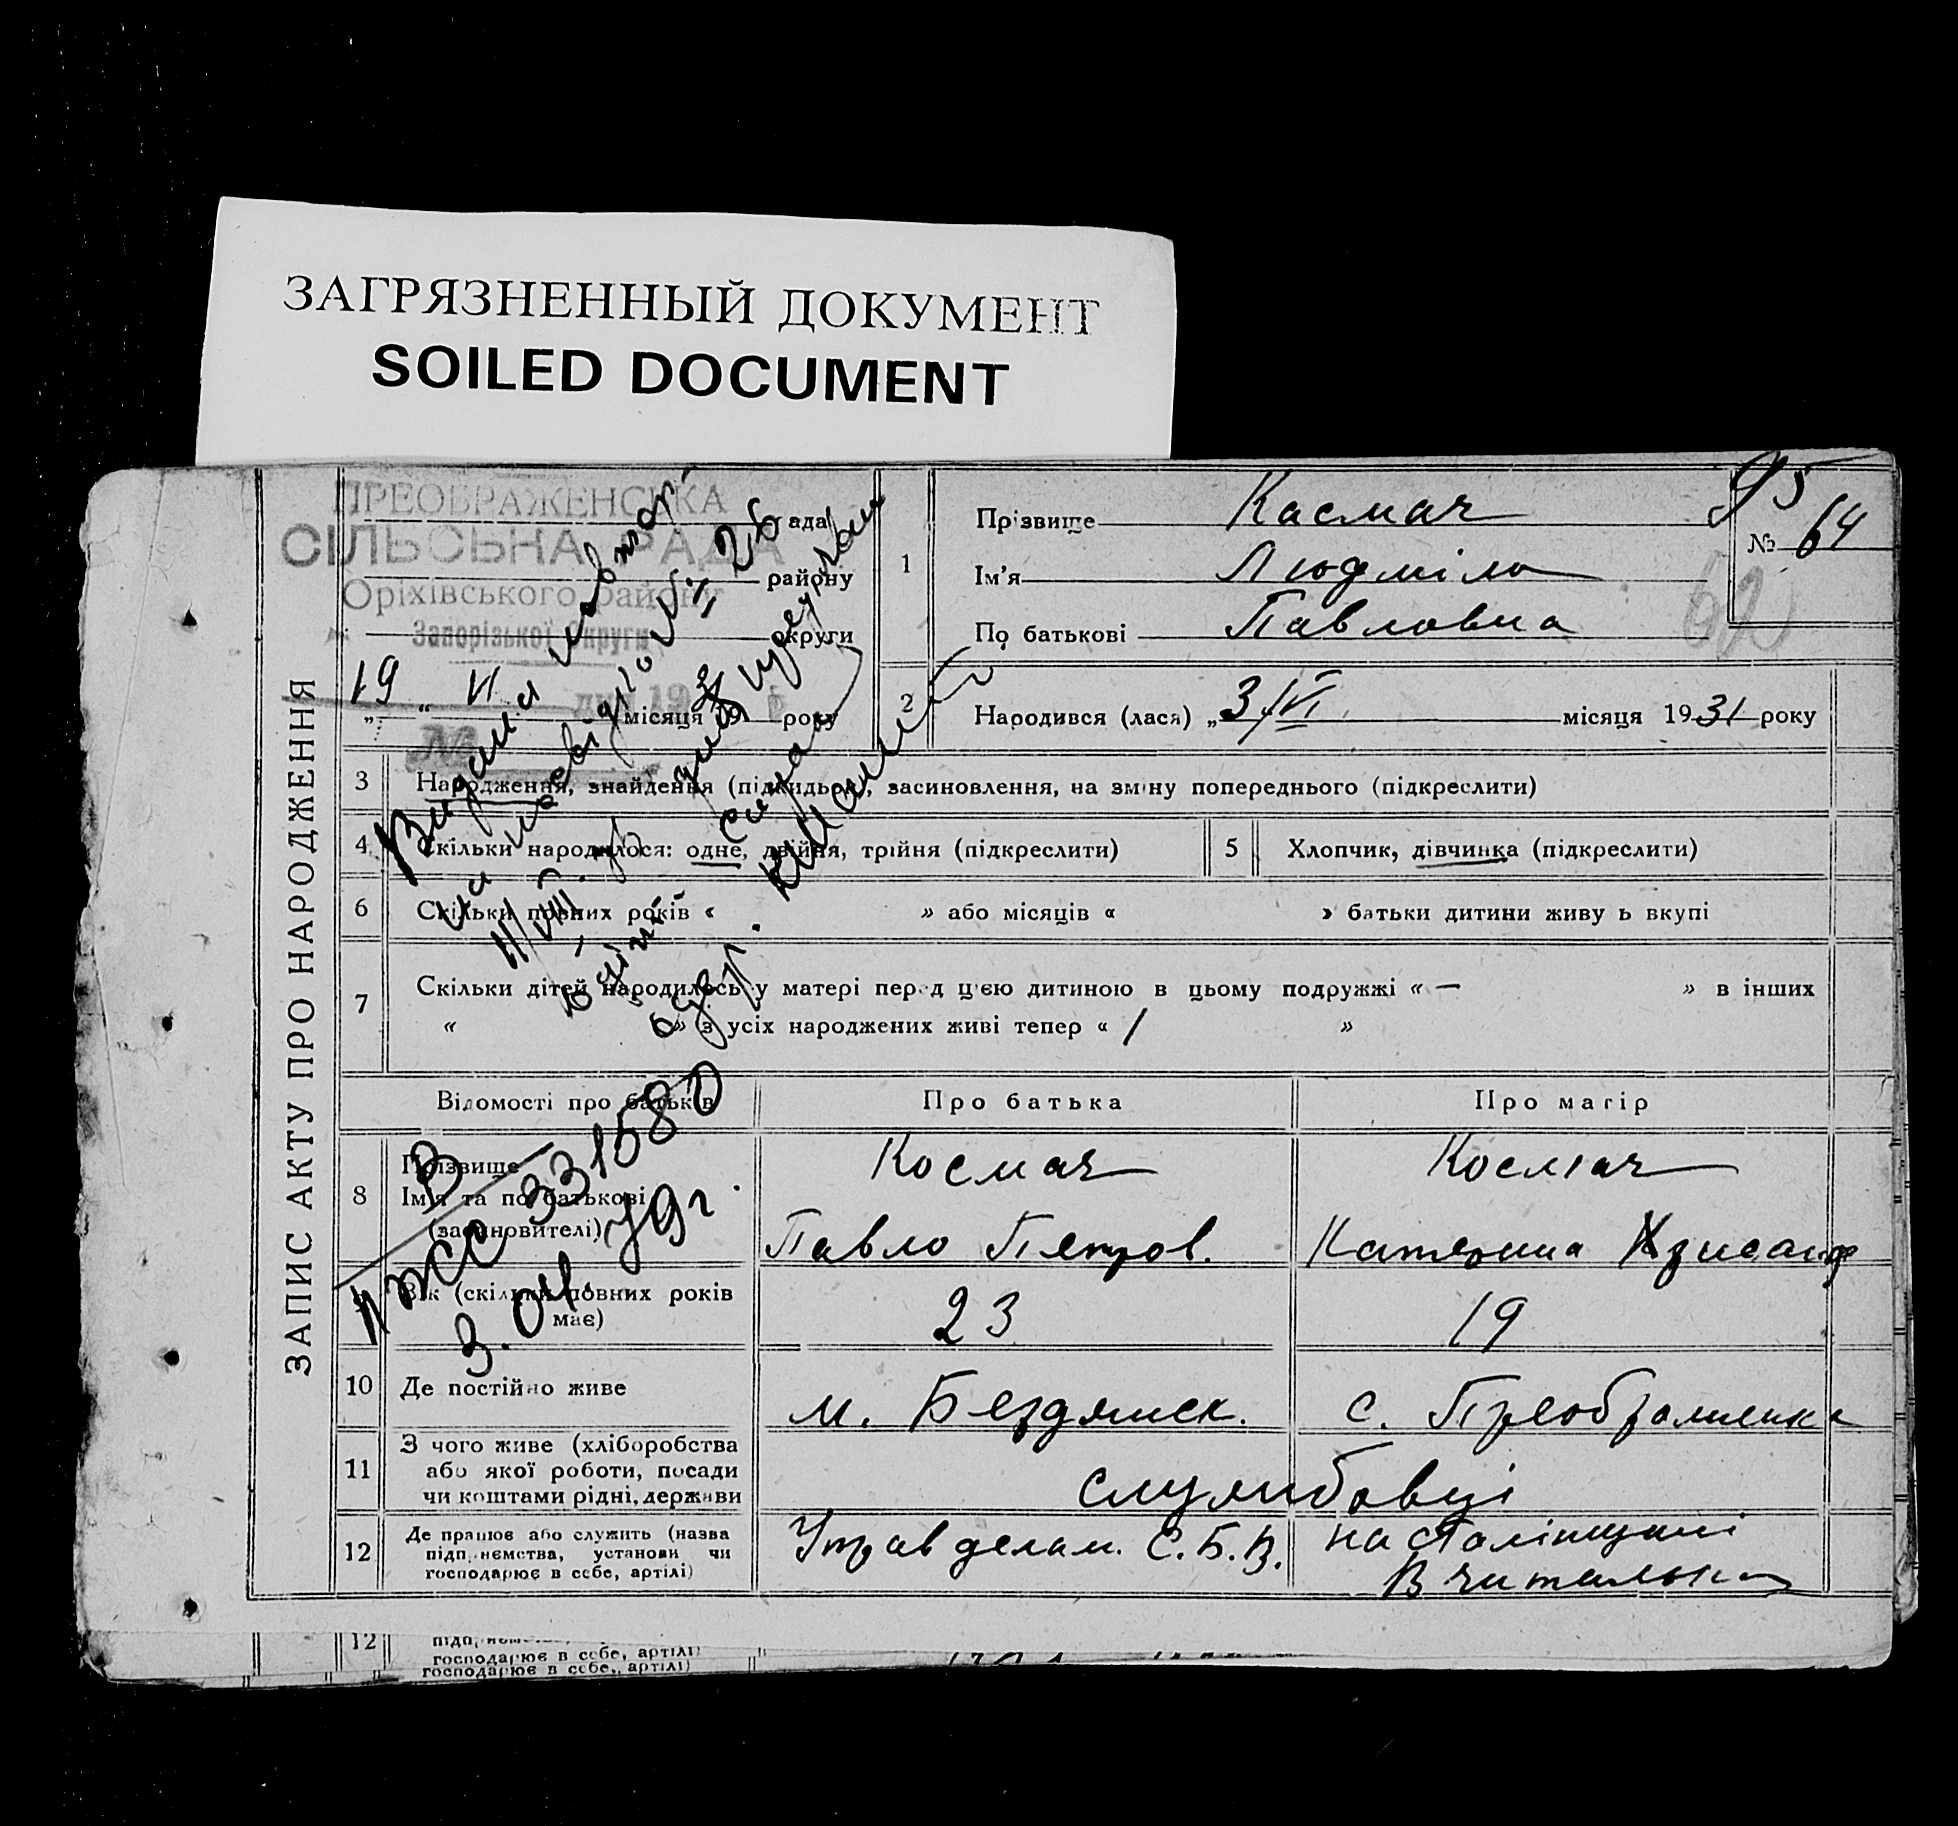 ЗАГРЯЗНЕННЫЙ ДОКУМЕНТ
SOILED DOCUMENT
ЗАПИС АКТУ ПРО НАРОДЖЕННЯ
ПРЕОБРАЖЕНСЬКА
СІЛЬСЬКА РАДА
Оріхівського району
Запорізької Округи
району
округи
19 " VI місяця 19 31 року
1
Прізвище Касмач
Ім'я Людміла
По батькові Павловна
95
№ 64
62
2
Народився (лася) „3/VI місяця 1931 року
3 Народження, знайдення (підкидьок), засиновлення, на зміну попереднього (підкреслити)
4 Скільки народилося: одне, двійня, трійня (підкреслити)
5 Хлопчик, дівчинка (підкреслити)
6 Скільки повних років « » або місяців « » батьки дитини живуть вкупі
7 Скільки дітей народилось у матері перед цією дитиною в цьому подружжі « — » в інших
« » з усіх народжених живі тепер « 1 »
№ 26
11/VIII
331580
3.04.79г.
Відомості про батьків
Про батька
Про матір
8 Прізвище
Ім'я та по батькові
(засиновителі)
Космач
Павло Петров.
Космач
Катерина Хрисанф
Вік (скільки повних років має)
23
19
10 Де постійно живе
м. Бердянск.
с. Преображенка
11 З чого живе (хліборобства
або якої роботи, посади
чи коштами рідні, держави
службовці
12 Де працює або служить (назва
підприємства, установи чи
господарює в себе, артілі)
Управ делам. С.Б.В.
на Сталінщині
Вчителька
12
господарює в себе, артілі)
господарює в себе, артілі)